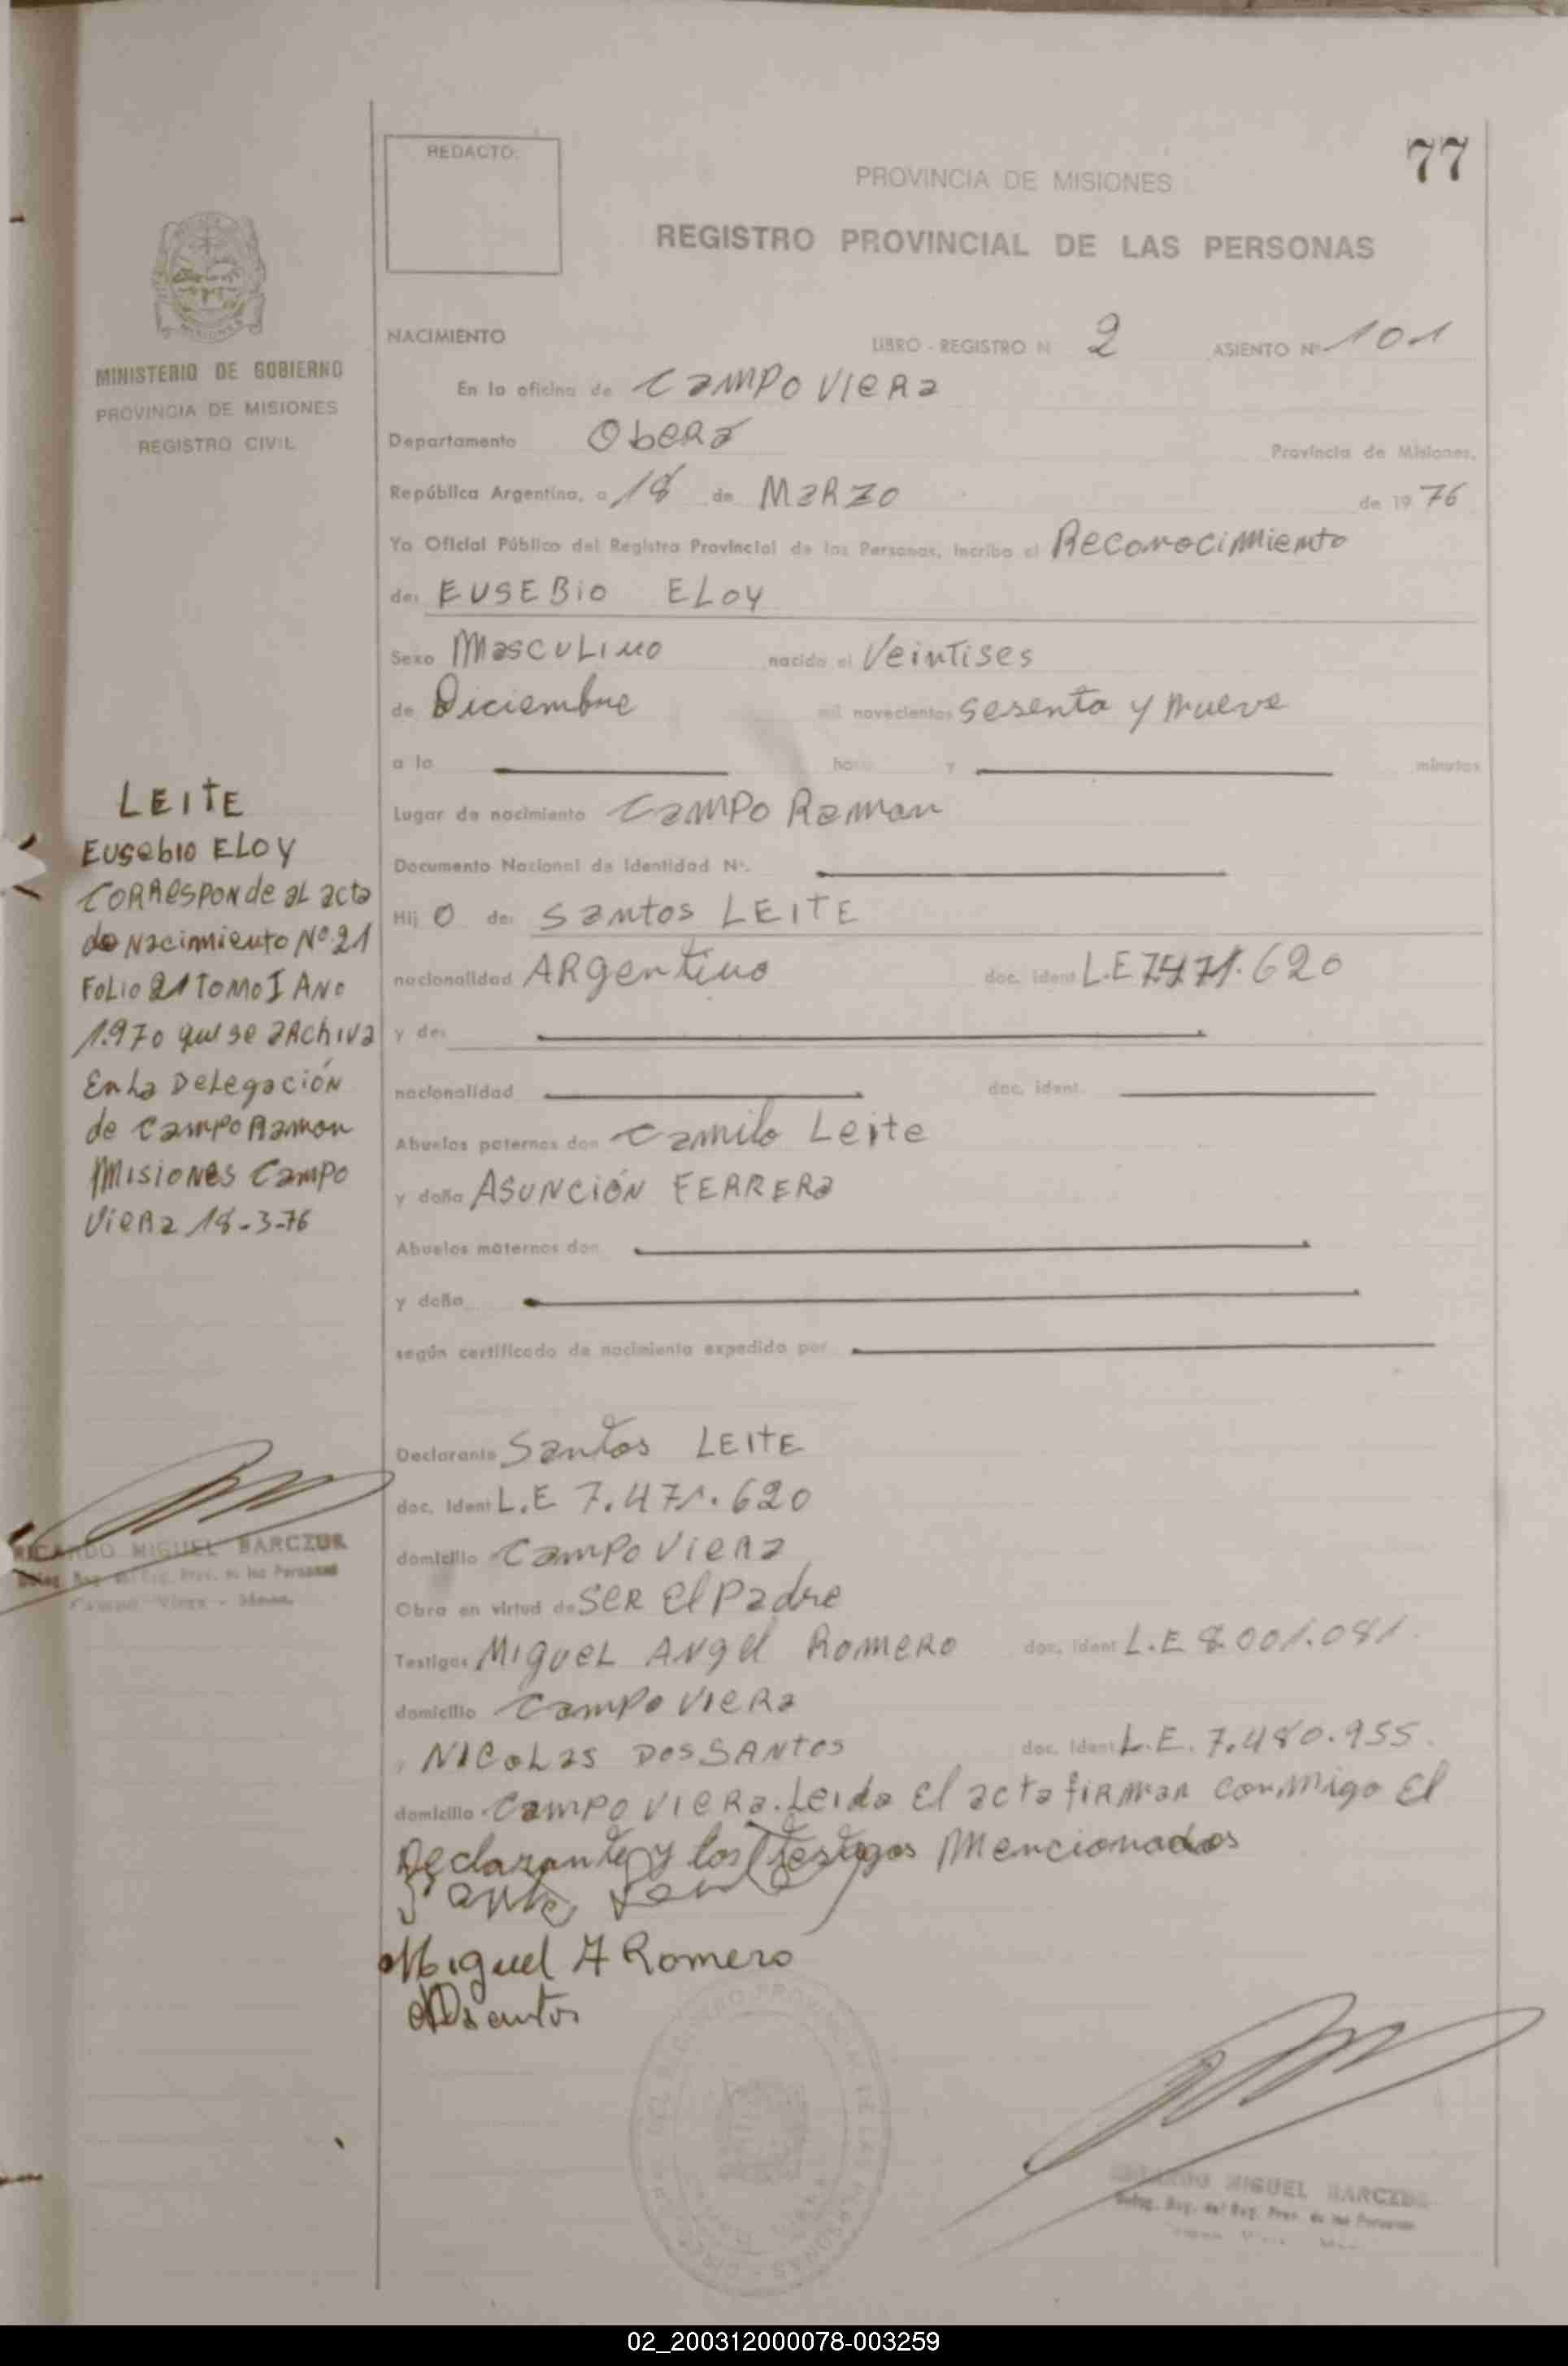 77
REDACTO:
PROVINCIA DE MISIONES
REGISTRO PROVINCIAL DE LAS PERSONAS
MINISTERIO DE GOBIERNO
PROVINCIA DE MISIONES
REGISTRO CIVIL
NACIMIENTO LIBRO - REGISTRO N 2 ASIENTO Nº 101
En la oficina de Campo Viera
Departamento Oberá Provincia de Misiones,
República Argentina, a 18 de Marzo de 1976
Yo Oficial Público del Registro Provincial de las Personas, inscribo el Reconocimiento
de: EUSEBIO ELOY
Sexo Masculino nacido el Veintises
de Diciembre mil novecientos sesenta y nueve
a la hora y minutos
Lugar de nacimiento Campo Ramon
Documento Nacional de Identidad Nº.
Hij o de: Santos LEITE
nacionalidad Argentino doc. ident L.E 7.471.620
y de:
nacionalidad doc. ident.
Abuelos paternos don Camilo Leite
y doña ASUNCIÓN FERRERA
Abuelos maternos don
y doña
según certificado de nacimiento expedido por
LEITE
Eusebio ELOY
Corresponde al acta
de Nacimiento Nº 21
Folio 21 Tomo I Año
1.970 que se archiva
En la Delegación
de Campo Ramon
Misiones Campo
Viera 18-3-76
Declarante Santos LEITE
doc. Ident L.E 7.471.620
domicilio Campo Viera
Obra en virtud de SER El Padre
Testigos MIGUEL ANGEL ROMERO doc. ident L.E 8.001.081.
domicilio Campo Viera
y NICOLAS DOS SANTOS doc. Ident L.E. 7.480.955.
domicilio Campo Viera. Leida El acta firman conmigo El
Declarante y los Testigos Mencionados
Miguel A Romero
RICARDO MIGUEL BARCZUK
Deleg. Reg. del Reg. Prov. de las Personas
Campo Viera - Mnes.
RICARDO MIGUEL BARCZUK
Deleg. Reg. del Reg. Prov. de las Personas
02_200312000078-003259